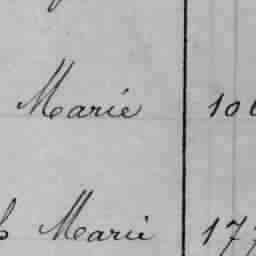 Marie 10
Marie 177